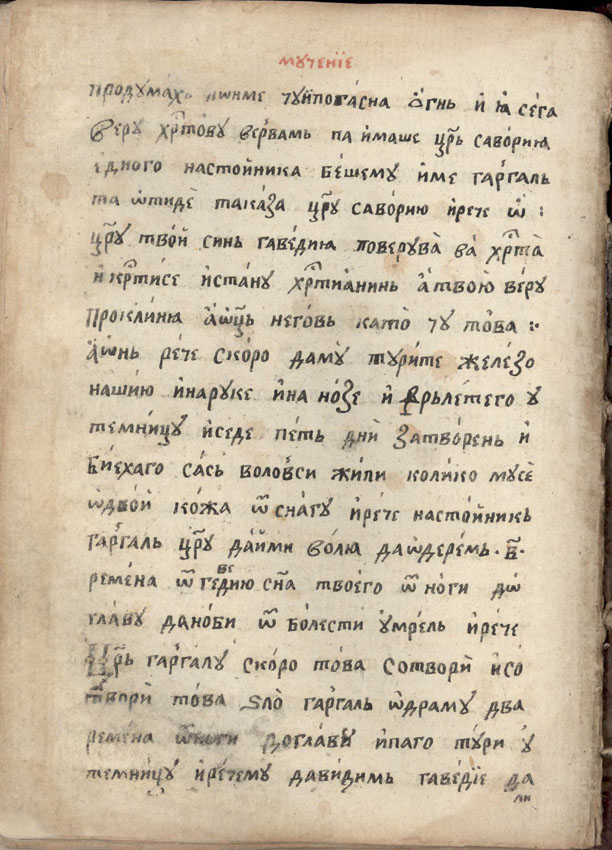 мꙋченїе
продумахь ѡнме туй погасна ѻгнь и ꙗ сега
веру хрⷭ҇тову вервамь па имаше цр҃ь саворию
едного настойника бешему име гаргаль
та ѡтиде таказа цр҃у саворию ирече ѡ :
цр҃у твой синь гаведию поверува ва хрⷭ҇та
и крⷭ҇тисе истану хрⷭ҇тианинь а твою веру
проклиню аѡц҃ь неговь като ту това :
аѡнь рече скоро даму турите железо
нашию инаруке ина нозе и фрьлетего у
темницу иседе петь дни затворень и
биехаго сась воловси жили колико мусе
ѡдвои кожа ѿ снагу ирече настойникь
гаргаль цр҃у дайми волю даѡдеремь · в҃ ·
ремена ѿ гаведию сн҃а твоего ѿ ноги дѡ
главу даноби ѿ болести умрель ирече
цр҃ь гаргалу скоро това сотвори исо
твори това ѕло гаргаль ѡдраму два
ремена ѿ ноги доглаву ипаго тури у
темницу иречему давидимь гаведїе да
ли